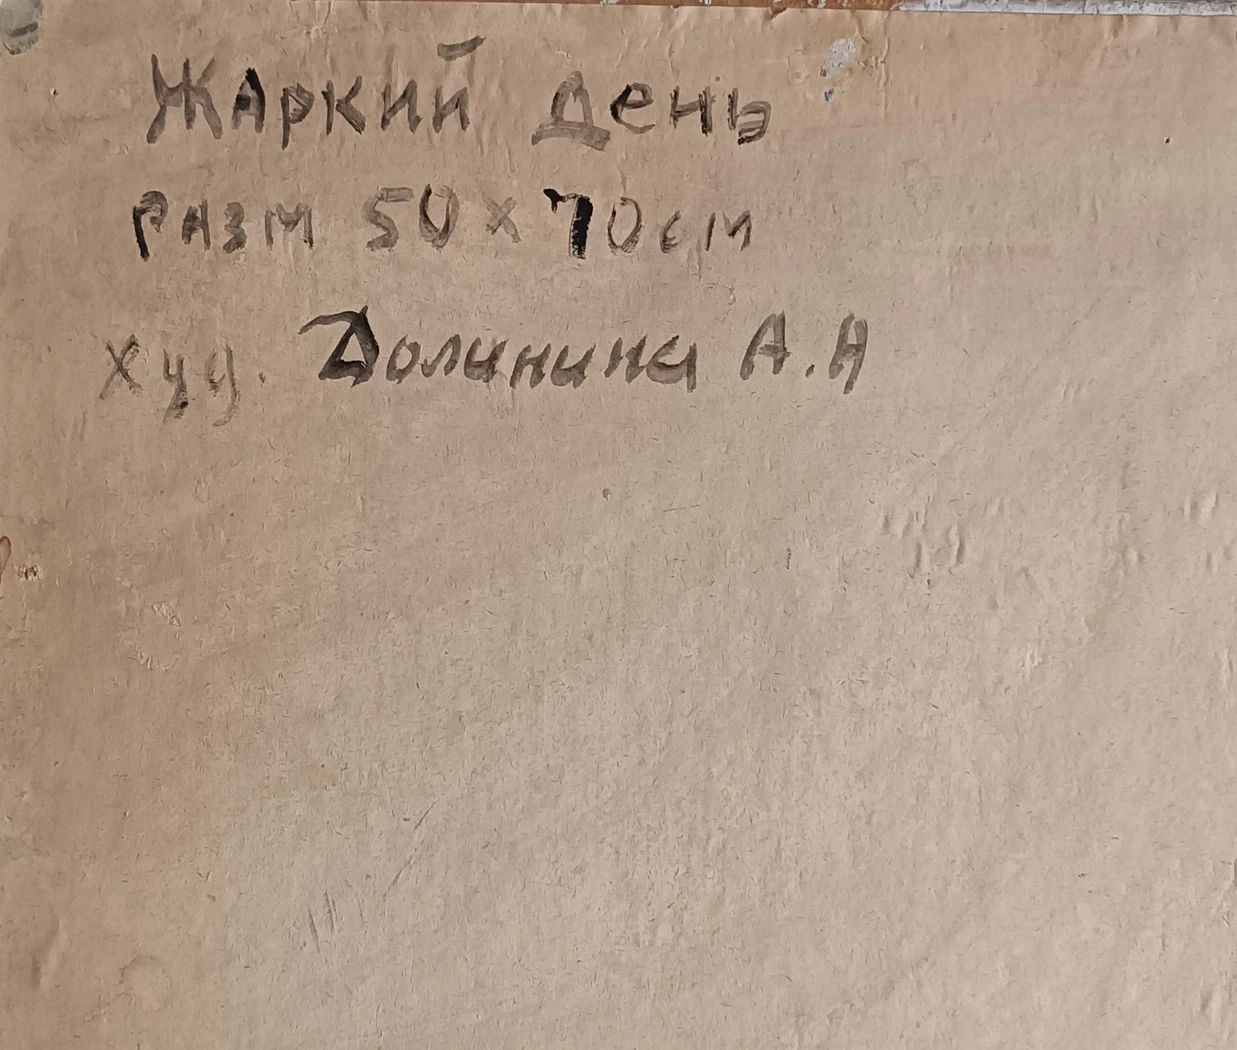 Жаркий День
разм 50 х 70 см
худ. Долинина А.А